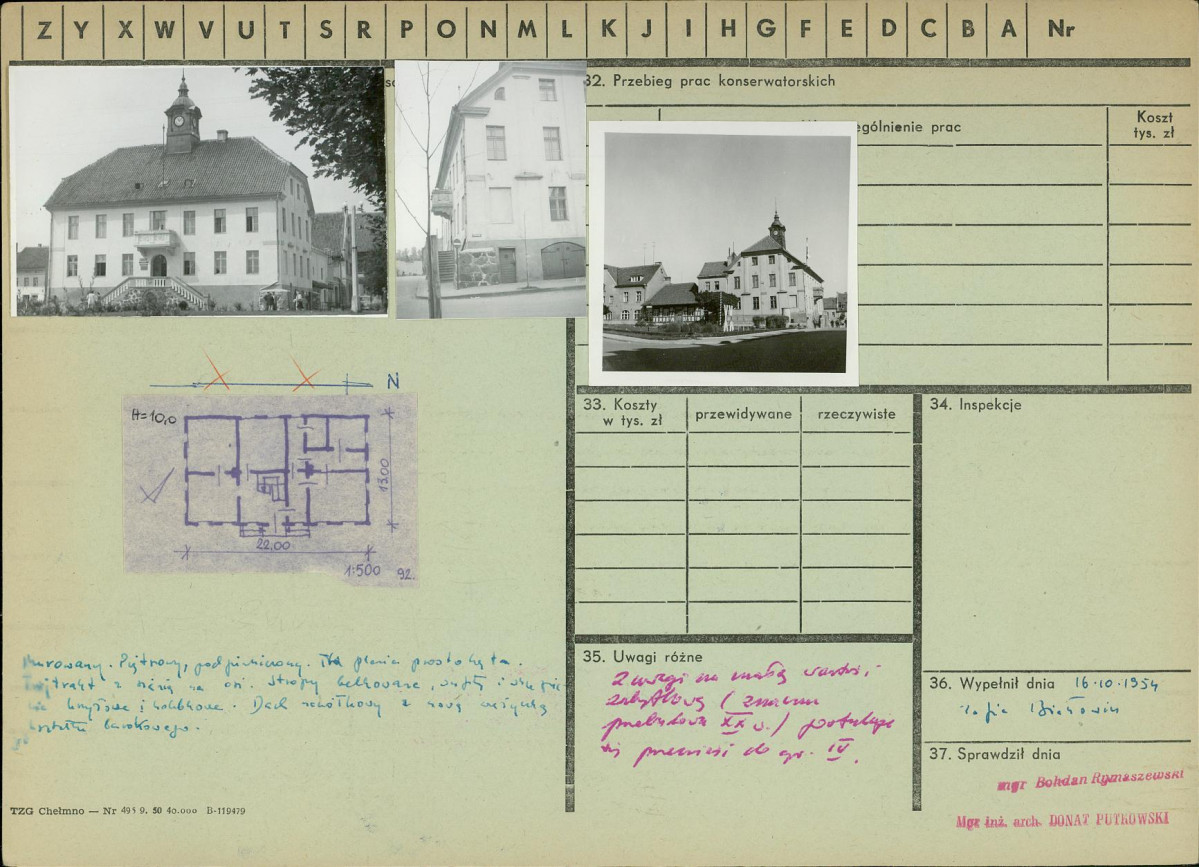 Z Y X W V U T S R P O N M L K J I H G F E D C B A Nr
32. Przebieg prac konserwatorskich
ególnienie prac
Koszt
tys. zł
N
H=10,0
13.00
22.00
1:500 92.
33. Koszty
w tys. zł
przewidywane
rzeczywiste
34. Inspekcje
Murowany. Piętrowy, podpiwniczony. Na planie prostokąta.
Trójtrakt z sienią na osi. Stropy belkowane, w
i kolebkowe. Dach z nową wieżyczką
barokowego.
35. Uwagi różne
Z uwagi na małą wartość
zabytkową (znaczna
przebudowa XX w.) postuluje
się przenieść do gr. IV.
36. Wypełnił dnia 16.10.1954
Zofia
37. Sprawdził dnia
mgr Bohdan Rymaszewski
Mgr inż. arch. DONAT PUTKOWSKI
TZG Chełmno — Nr 495 9. 50 40.000 B-119479